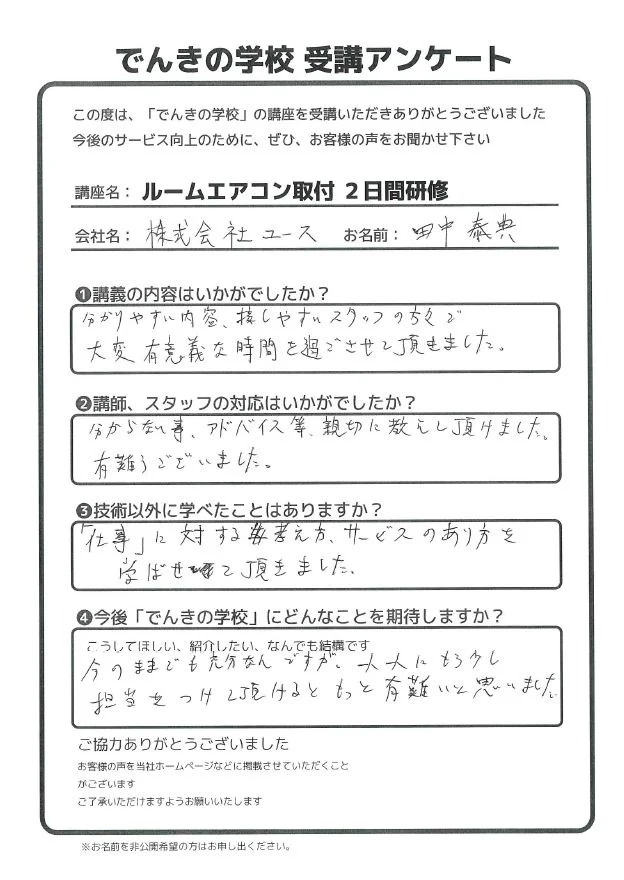 でんきの学校 受講アンケート
この度は、「でんきの学校」の講座を受講いただきありがとうございました
今後のサービス向上のために、ぜひ、お客様の声をお聞かせ下さい
講座名： ルームエアコン取付 2日間研修
会社名： 株式会社ユース お名前： 田中 泰典
❶講義の内容はいかがでしたか？
分かりやすい内容、接しやすいスタッフの方々で
大変有意義な時間を過ごさせて頂きました。
❷講師、スタッフの対応はいかがでしたか？
分からない事、アドバイス等、親切に教えし頂けました。
有難うございました。
❸技術以外に学べたことはありますか？
「仕事」に対する考え方、サービスのあり方を
学ばせて頂きました。
❹今後「でんきの学校」にどんなことを期待しますか？
こうしてほしい、紹介したい、なんでも結構です
今のままでも充分なんですが、人人にもう少し
担当をつけて頂けるともっと有難いと思いました
ご協力ありがとうございました
お客様の声を当社ホームページなどに掲載させていただくこと
がございます
ご了承いただけますようお願いいたします
※お名前を非公開希望の方はお申し出ください。